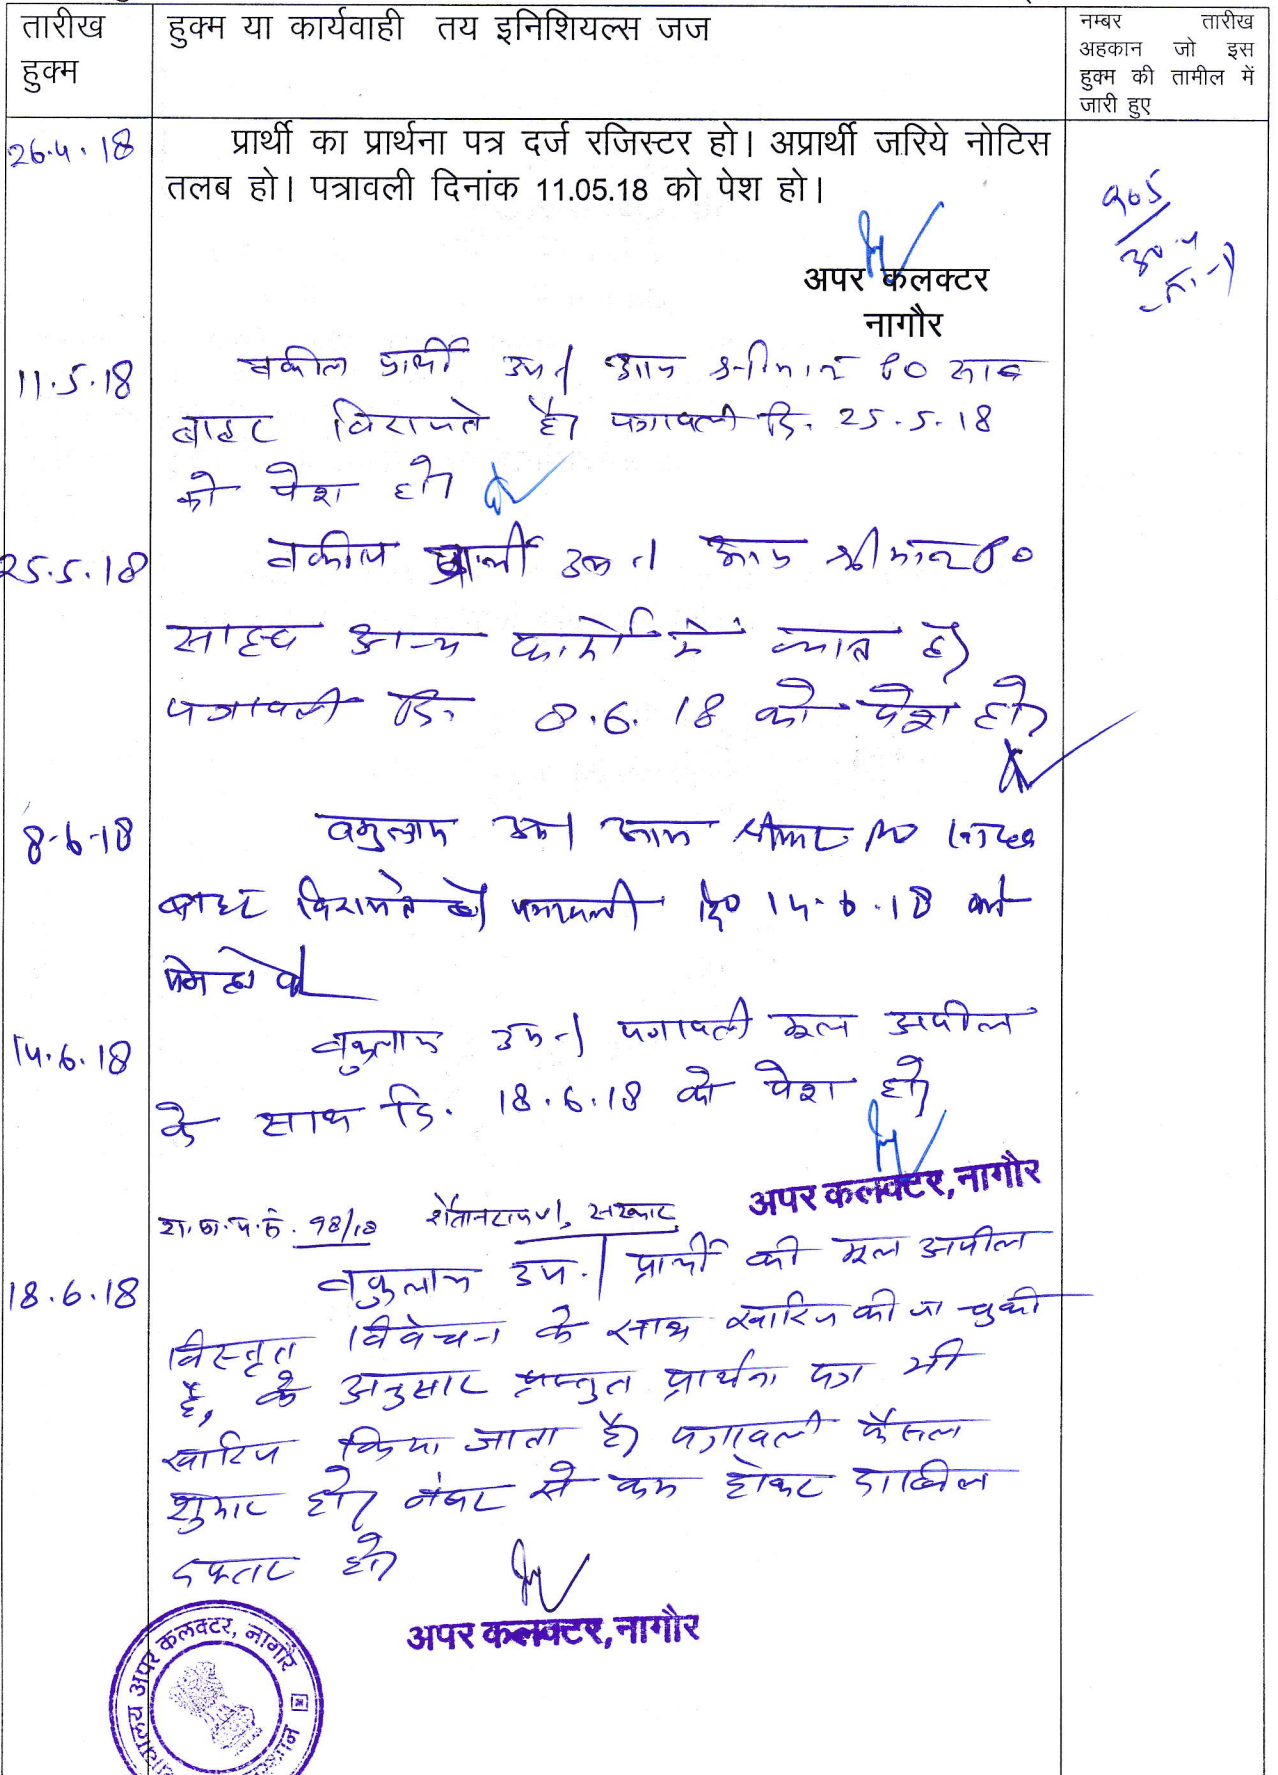 तारीख हुक्म या कार्यवाही तय इनिशियल्स जज नम्बर तारीख
हुक्म अहकान जो इस
हुक्म की तामील में
जारी हुए
26.4.18 प्रार्थी का प्रार्थना पत्र दर्ज रजिस्टर हो। अप्रार्थी जरिये नोटिस
तलब हो। पत्रावली दिनांक 11.05.18 को पेश हो।
905
30-4
अपर कलक्टर
नागौर
11.5.18 वकील प्रार्थी उप। आज श्रीमान P0 साहब
बाहर विराजते है। पत्रावली दि. 25.5.18
को पेश हो।
25.5.18 वकील प्रार्थी उप। आज श्रीमान P0
साहब अन्य कार्यो में व्यस्त है।
पत्रावली दि. 8.6.18 को पेश हो।
8-6-18 वकुलाय उप। आज श्रीमान PO साहब
बाहर विराजते है। पत्रावली दि0 14.6.18 को
पेश हो
14.6.18 वकुलाय उप। पत्रावली मूल अपील
के साथ दि. 18.6.18 को पेश हो।
अपर कलक्टर, नागौर
98/18 शैतानराम v/s सरकार
18.6.18 वकुलाय उप.। प्रार्थी की मूल अपील
विस्तृत विवेचन के साथ खारिज की जा चुकी
है, के अनुसार प्रस्तुत प्रार्थना पत्र भी
खारिज किया जाता है। पत्रावली फैसल
शुमार हो। नंबर से कम होकर दाखिल
दफ्तर हो।
अपर कलक्टर, नागौर
अपर कलक्टर, नागौर